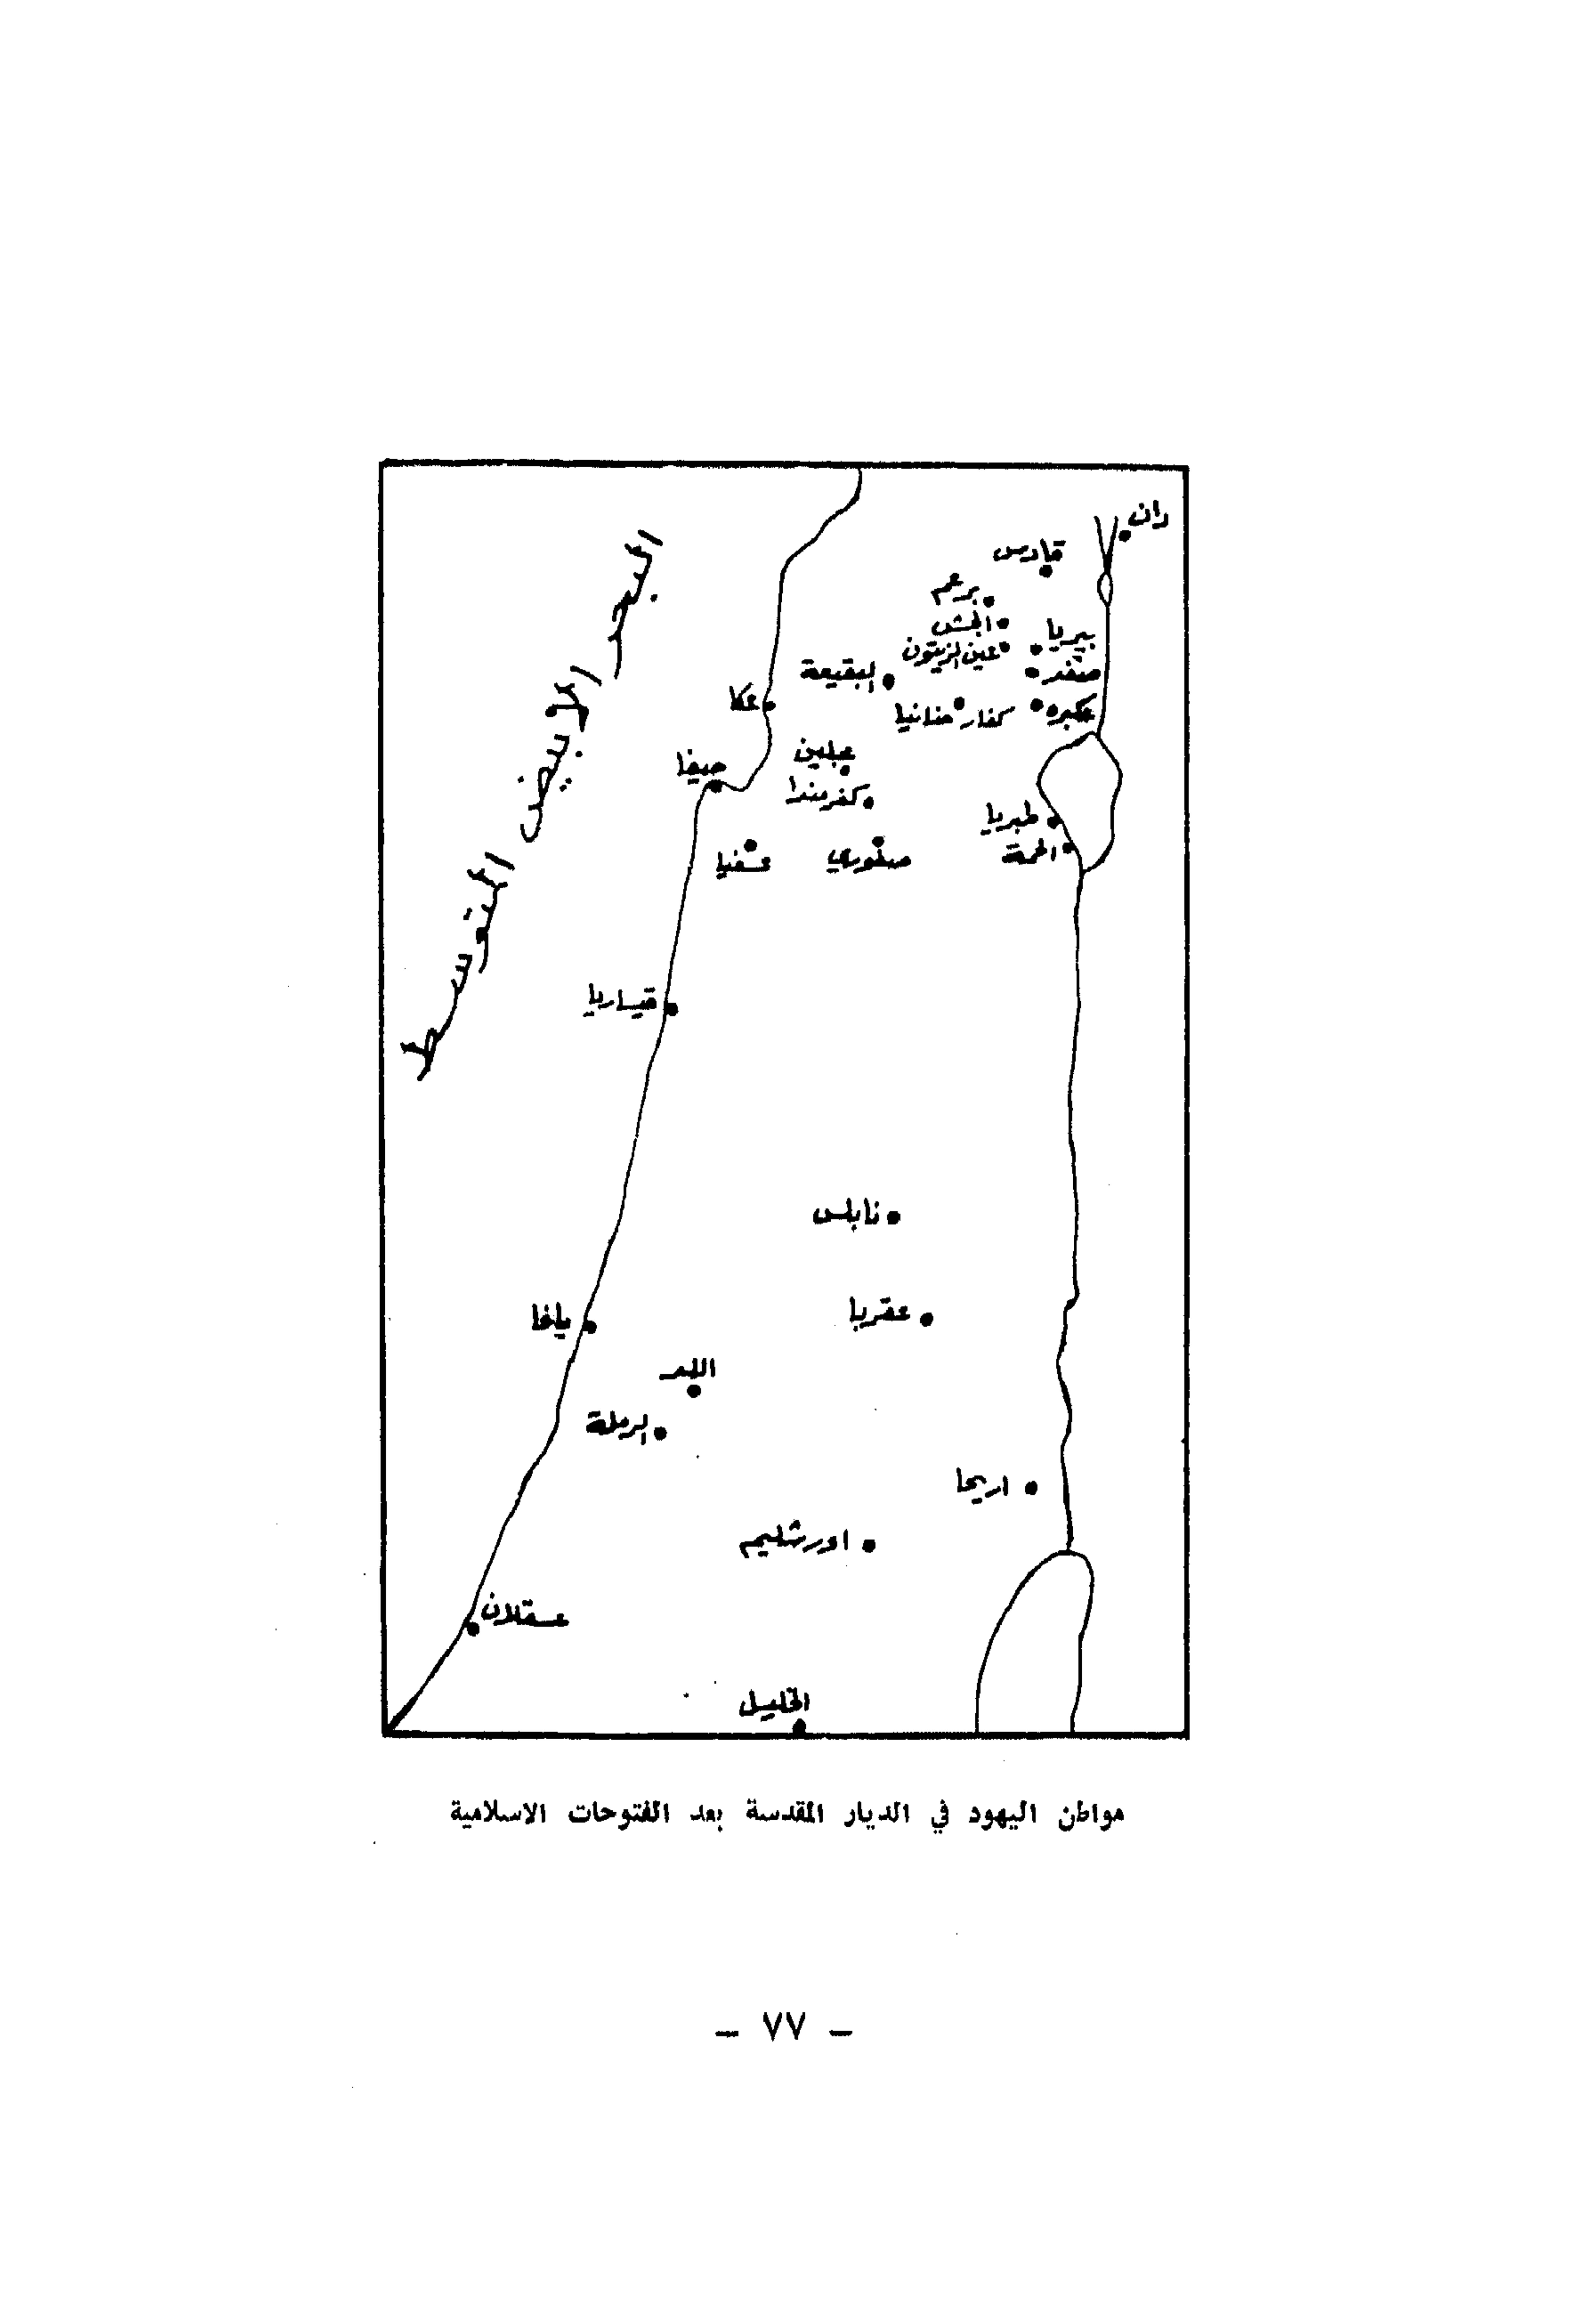 البحر الابيض المتوسط
دان
قادس
برعم
الجش
بيريا
عين الزيتون
صفد
البقيعة
عكبره
كفار حنانيا
عكا
عبلين
حيفا
كفر مندا
طبريا
الحمة
صفوري
عسفيا
قيساريا
نابلس
عقربا
يافا
اللد
الرملة
اريحا
اورشليم
عسقلان
الخليل
مواطن اليهود في الديار المقدسة بعد الفتوحات الاسلامية
— ٧٧ —